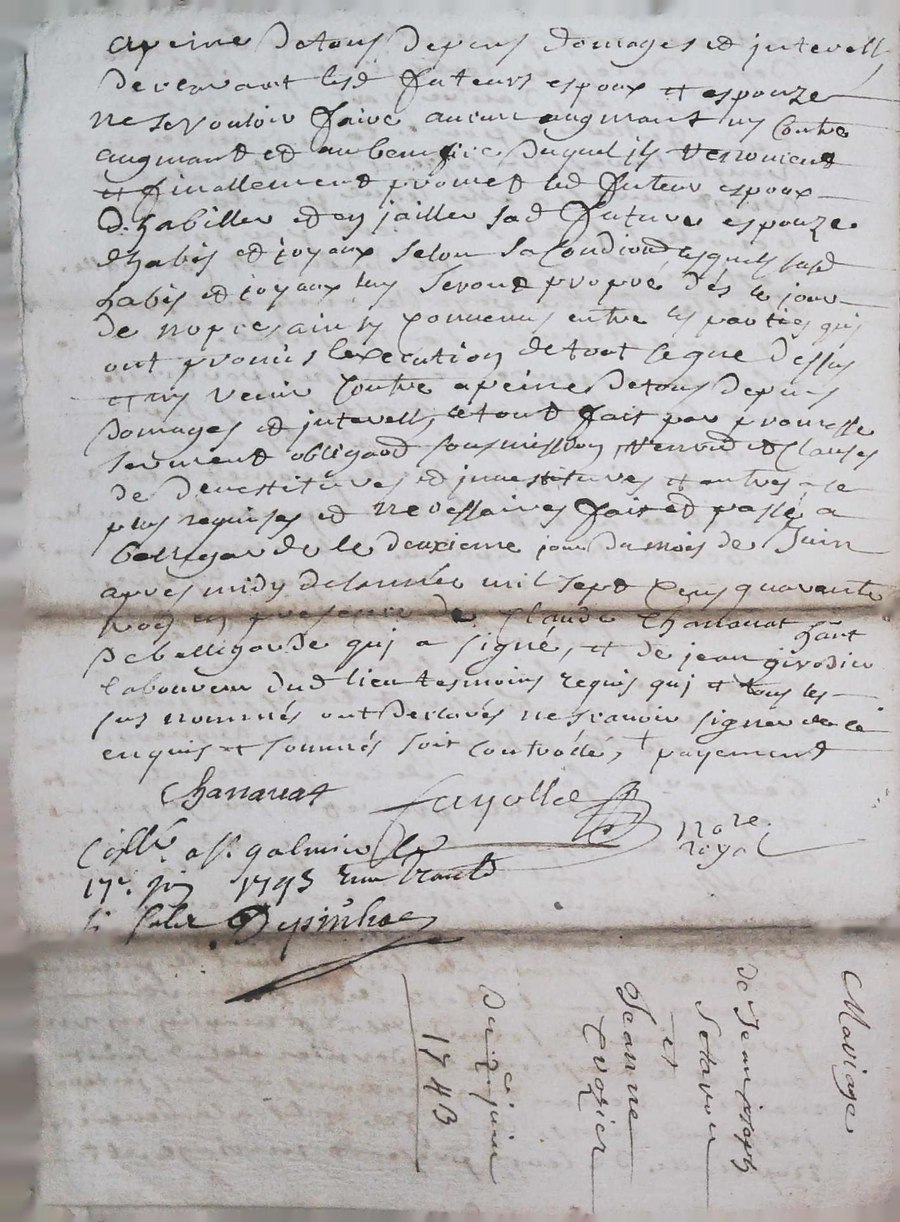 apeine de tous depens domages et interest
devenant lesd futeurs espoux et espouze
ne se vouloir faire aucun augmant ny contre
augmant et au benefice duquel ils renoncient
et finallement promet led futeur espoux
d'habiller et enjailler sad future espouze
dhabis et joyaux selon sa condiond lesquels susd
habis et joyaux luy seront propre dés le jour
de nopces ainsy convenus entre les parties quy
ont promis lexecution de tout ce que dessus
et ny venir contre apeine de tous depens
domages et interest, le tout fait par promesse
serment obligaōd soumission, renond et clauses
de devestitures et investitures et autres a ce
plus requises et necessaires fait et passé a
belligarde le deuxieme jour du mois de Juin
apres midy de lannée mil sept cens quarante
trois en presence de Claude Chanavat
hant
de belligarde qui a signé, et de jean girodier
laboureur dud lieu tesmoins requis qui et tous les
sus nommés ont declarés ne scavoir signer de ce
enquis et sommés soit controllé, + payement
Chanavat Fayolle
Nore.
royal
Collé a st. galmier le
17e. juin 1743
Mariage
de Jean joseph
et
Jeanne
Du 2e juin
1743